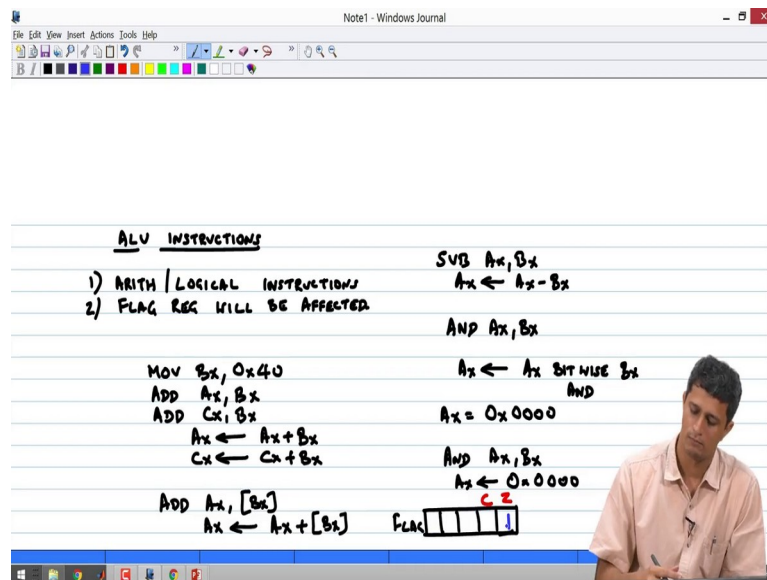 Note1 - Windows Journal
File Edit View Insert Actions Tools Help
B I
ALU INSTRUCTIONS
1) ARITH / LOGICAL INSTRUCTIONS
2) FLAG REG WILL BE AFFECTED
MOV Bx, 0x40
ADD Ax, Bx
ADD Cx, Bx
Ax ← Ax + Bx
Cx ← Cx + Bx
ADD Ax, [Bx]
Ax ← Ax + [Bx]
SUB Ax, Bx
Ax ← Ax - Bx
AND Ax, Bx
Ax ← Ax BITWISE Bx
AND
Ax = 0x0000
AND Ax, Bx
Ax ← 0x0000
C Z
FLAG 1